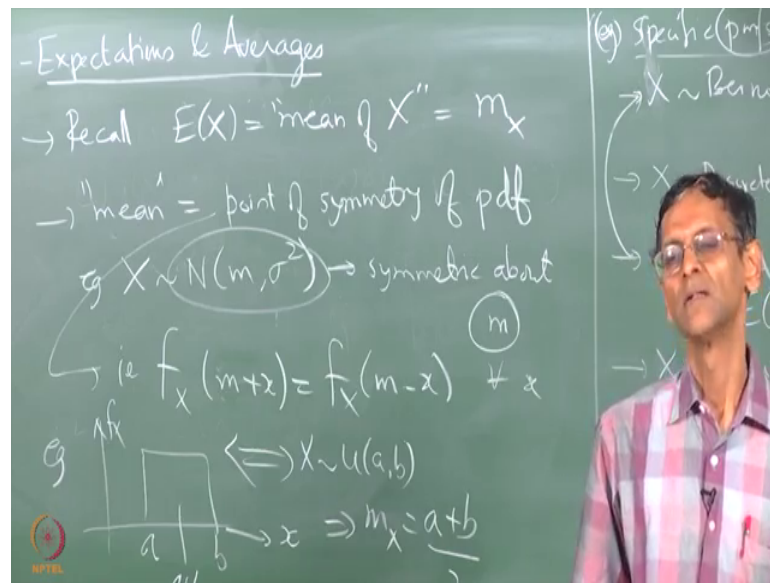 - Expectations & Averages
→ Recall E(X) = "mean of X" = m_X
→ "mean" = point of symmetry of pdf
eg X ~ N(m, σ²) → symmetric about
m
→ ie f_X (m+x) = f_X (m-x) ∀ x
eg f_X ⟺ X ~ U(a,b)
a b → x ⇒ m_X = a+b
2
(eg) Specific (pmfs
→ X ~ Bern
→ X
→ X
NPTEL